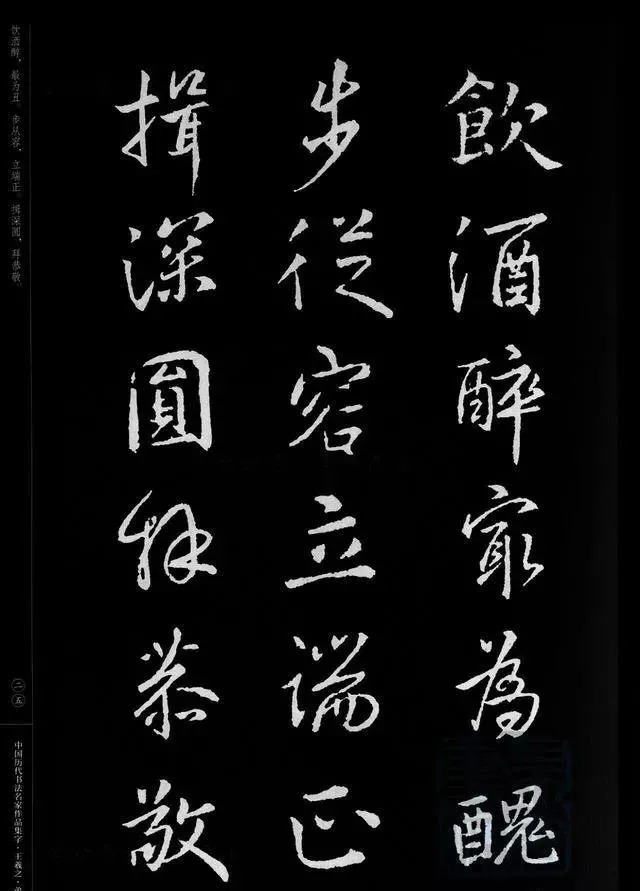 飲酒醉㝡為醜
步從容立端正
揖深圓拜恭敬
饮酒醉，最为丑。步从容，立端正。揖深圆，拜恭敬。
二五
中国历代书法名家作品集字·王羲之·弟